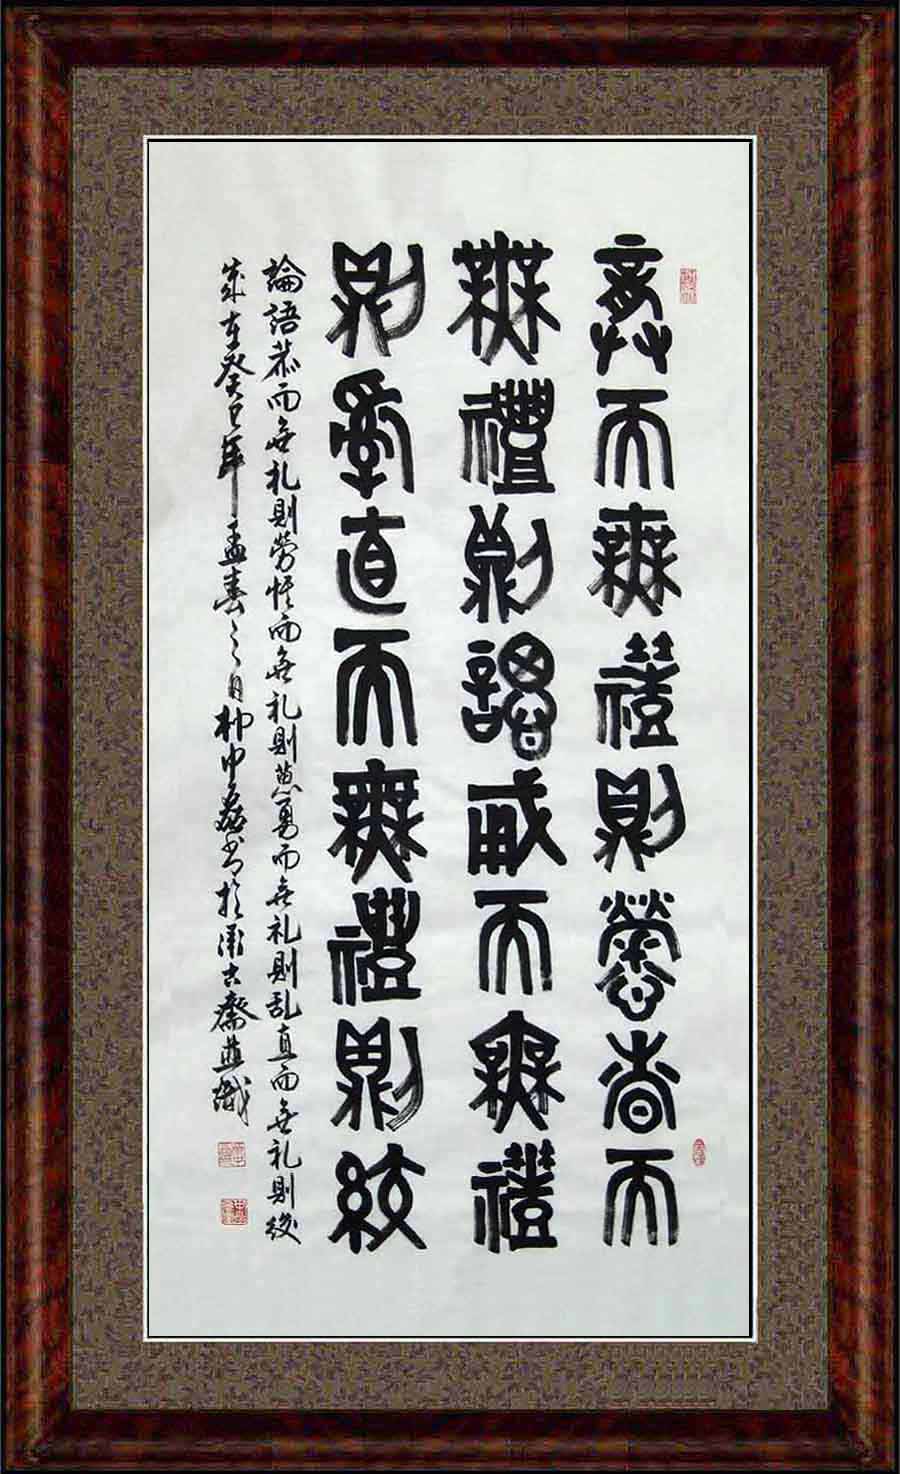 恭而無禮則勞昚而
無禮則諰勇而無禮
則亂直而無禮則絞
論語恭而無礼則勞慎而無礼則葸勇而無礼則乱直而無礼則絞
歲在癸巳年孟春之月柳中書於古齋並識